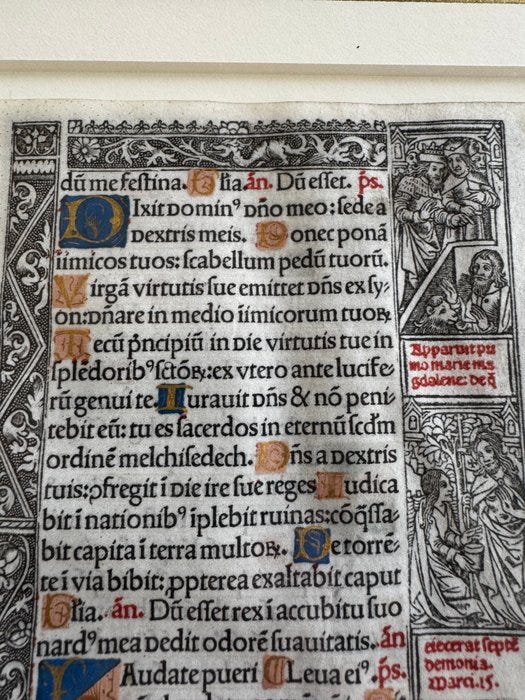 dū me festina. Glīa. an̄. Dū esset. ps.
DIxit Domin⁹ dn̄o meo: sede a
Dextris meis. Donec ponā
īimicos tuos: scabellum pedū tuorū.
Virgā virtutis sue emittet dn̄s ex sy-
on: dn̄are in medio īimicorum tuoꝝ
Tecū pn̄cipiū in die virtutis tue in
splēdorib⁹ sctōꝝ: ex vtero ante lucife-
rū genui te. Iurauit dn̄s & nō peni-
tebit eū: tu es sacerdos in eternū scd̄m
ordinē melchisedech. Dn̄s a Dextris
tuis: ꝯfregit ī die ire sue reges Iudica
bit ī nationib⁹ īplebit ruinas: cōq̄ssa-
bit capita ī terra multoꝝ. De torrē-
te ī vīa bibit: ꝓpterea exaltabit caput
Glīa. an̄. Dū esset rex ī accubitu suo
nard⁹ mea Dedit odorē suauitatis. an̄
LAudate pueri Leua ei⁹. ps.
Apparuit pri
mo marie ma
gdalene: de q̄
eiecerat septē
demonia.
Marci. 15.